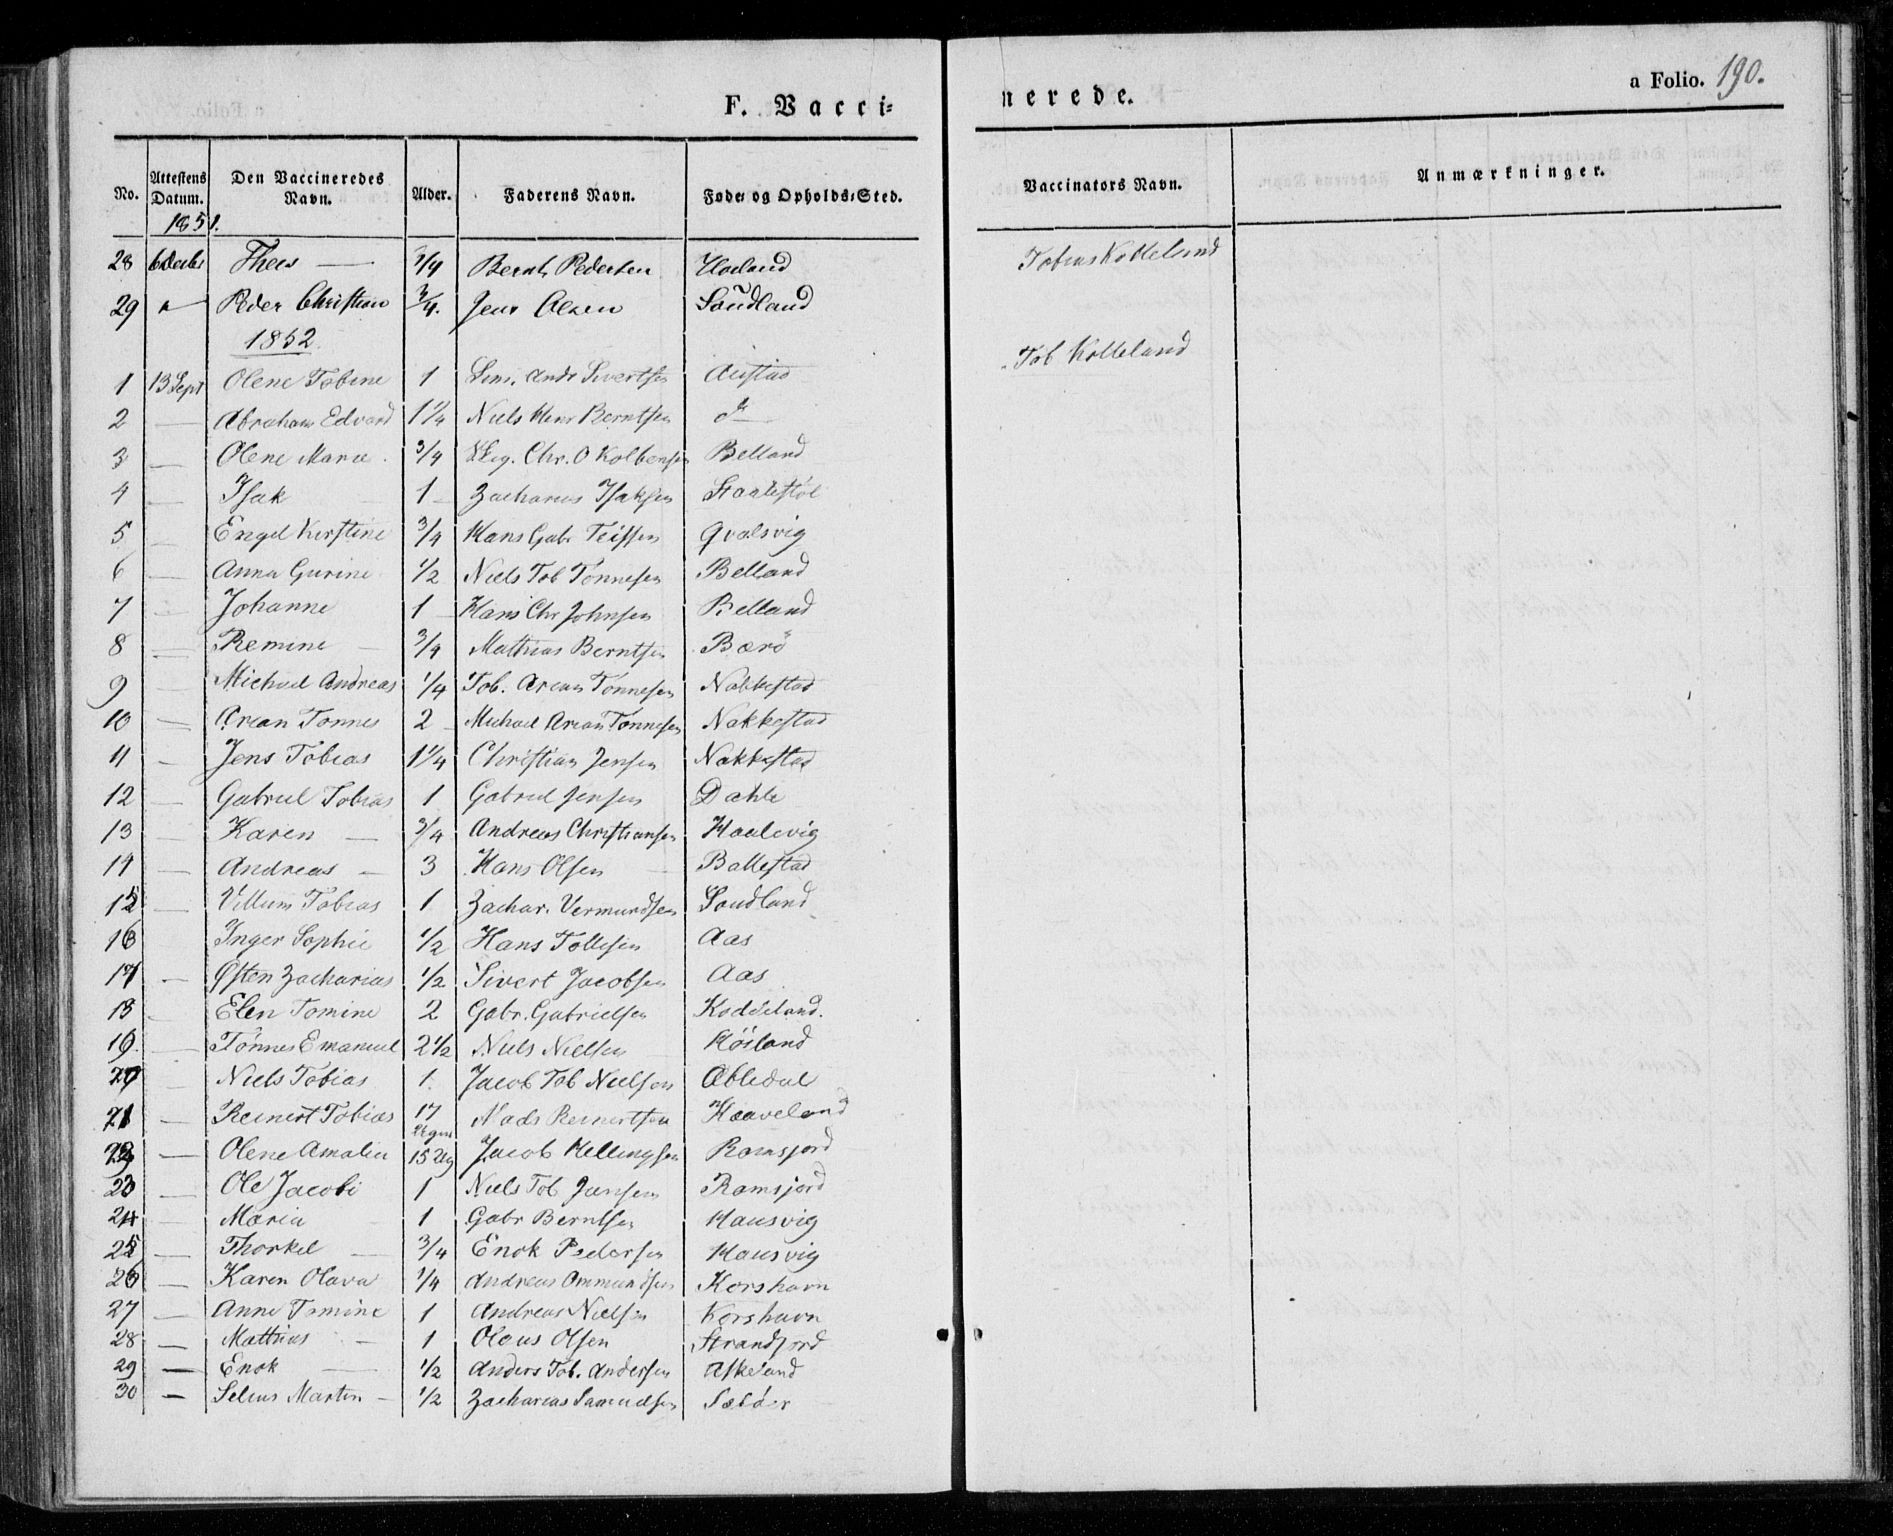 F. Vacci-
nerede.
a Folio. 190.
No. Attestens Datum. Den Vaccineredes Navn. Alder. Faderens Navn. Føde- og Opholds-Sted. Vaccinators Navn. Anmærkninger.
1851.
28 6 Decbr Thees — 3/4 Bernt Pedersen Høeland Tobias Kolleland
29 " Peder Christian 3/4. Jens Olsen Saudland
1852.
1 13 Sept Olene Tobine 1 And Sivertsen Austad Tob Kolleland
2 — Abraham Edvard 1 1/4 Niels Henr Berntsen d—
3 — Olene Marie 3/4 Chr. O Kolbensen Belland
4 — Isak 1 Zacharias Isaksen
5 — Engel Kirstine 3/4 Hans Gabr Teissen Qvalsvig
6 — Anna Gurine 1/2 Niels Tob Tønnesen Belland
7 — Johanne 1 Hans Chr Johnsen Belland
8 — Remine — 3/4 Mathias Berntsen Bærø
9 — Michael Andreas 1/4 Tob. Arean Tønnesen Nakkestad
10 — Arean Tønnes 2 Michael Arean Tønnesen Nakkestad
11 — Jens Tobias 1 1/4 Christian Jensen Nakkestad
12 — Gabriel Tobias 1 Gabriel Jensen Dahle
13 — Karen — 3/4 Andreas Christiansen Haalevig
14 — Andreas — 3 Hans Olsen Ballestad
15 — Villum Tobias 1 Zachar. Vermundsen Saudland
16 Inger Sophie 1/2 Hans Tollefsen Aas
17 — Østen Zacharias 1/2 Sivert Jacobsen Aas
18 Elen Tomine 2 Gabr. Gabrielsen Koddeland.
19. — Tønnes Emanuel 2 1/2 Niels Nielsen Høiland
20 — Niels Tobias 1. Jacob Tob Nielsen Øbledal
21 — Reinert Tobias 17 Uger Mads Reinertsen Haaveland
22 — Olene Amalia 15 Ug Jacob Hellingsen Ramsjord
23 — Ole Jacobi 1 Niels Tob Jansen Ramsjord
24 — Maria 1 Gabr Berntsen Hausvig
25 — Thorkel — 3/4 Enok Pedersen Hausvig
26 — Karen Olava 1/4 Andreas Ommundsen Korshavn
27 — Anne Tomine 1 Andreas Nielsen Korshavn
28 — Mathias — 1 Olaus Olsen Strandfjord
29 — Enok — 1/2 Anders Tob. Andersen Askeland
30 — Selius Martin — 1/2 Zacharias Samuelsen Sæbøer